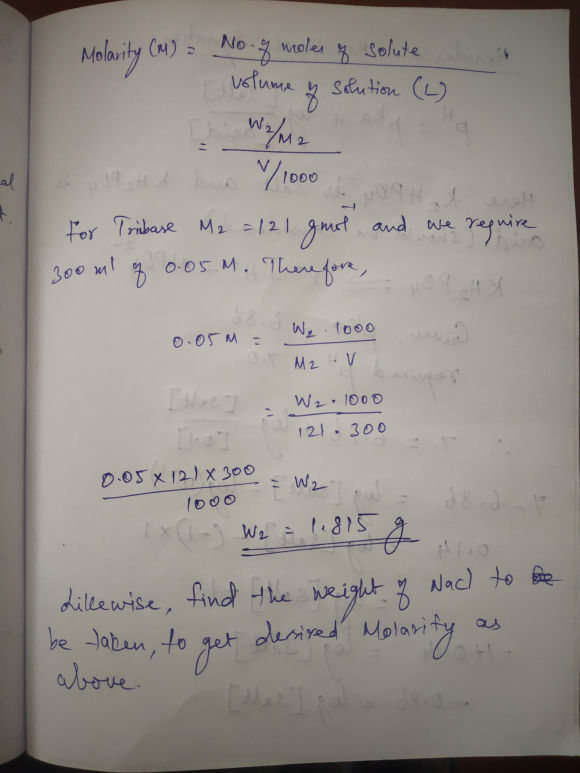 Molarity (M) = No. of moles of solute
Volume of solution (L)
= W2/M2
V/1000
For Trisbase M2 = 121 gmol⁻¹ and we require
300 ml of 0.05 M. Therefore,
0.05 M = W2 . 1000
M2 . V
= W2 . 1000
121 . 300
0.05 x 121 x 300 = W2
1000
W2 = 1.815 g
Likewise, find the weight of Nacl to
be taken, to get desired Molarity as
above.